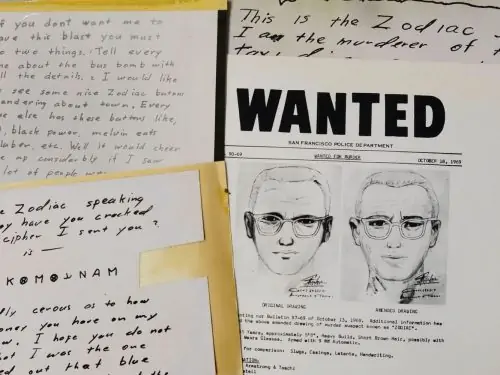 f you dont want me to
ave this blast you must
o two things. Tell every
ne about the bus bomb with
ll the details. I would like
see some nice Zodiac butons
andering about town. Every
one else has these buttons like,
, black power, melvin eats
luber, etc. Well it would cheer
me up considerbly if I saw
lot of people
This is the Zodiac
I am the murderer of
e Zodiac speaking
y have you cracked
cipher I sent you?
is —
lly cerous as to how
oney you have on my
w. I hope you do not
hat I was the one
ed out that blue
WANTED
SAN FRANCISCO POLICE DEPARTMENT
90-69 WANTED FOR MURDER OCTOBER 18, 1969
ORIGINAL DRAWING AMENDED DRAWING
ting our Bulletin 87-69 of October 13, 1969. Additional information has
the above amended drawing of murder suspect known as "ZODIAC".
Years, approximately 5'8", Heavy Build, Short Brown Hair, possibly with
Wears Glasses. Armed with 9 MM Automatic.
for comparison: Slugs, Casings, Latents, Handwriting.
ATION:
Armstrong & Toschi